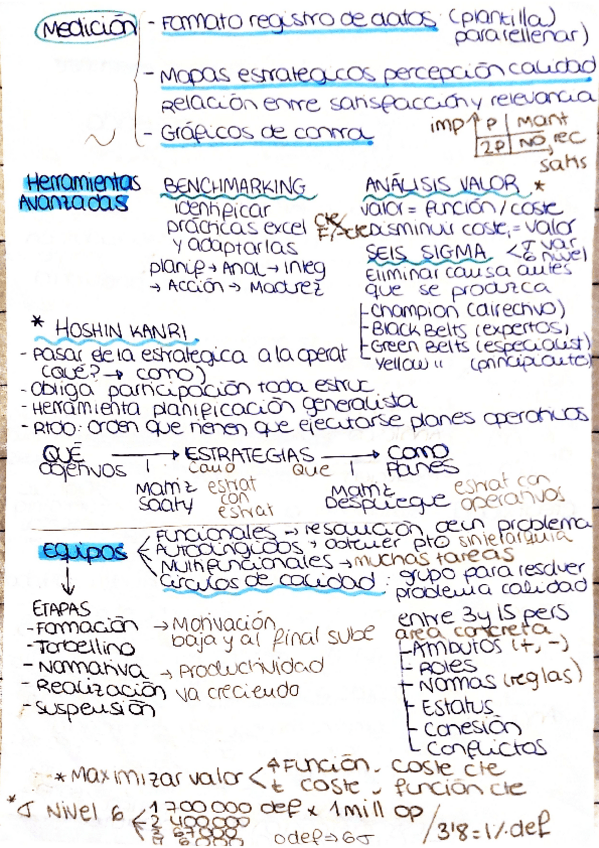 Medición
- Formato registro de datos (plantilla)
para rellenar)
- Mapas estrategicos percepción calidad
Relación entre satisfacción y relevancia
- Gráficos de contra
imp P Mant
2P NO rec
satis
Herramientas
Avanzadas
BENCHMARKING
identificar
prácticas excel
y adaptarlas
planif → Anal → integ
→ Acción → Madrez
ANÁLISIS VALOR *
valor = función / coste
cte
F/cte Disminuir coste, = valor
SEIS SIGMA < σ var
6 nivel
Eliminar causa antes
que se produzca
- Champion (directivo)
- Black Belts (expertos)
- Green Belts (especialist)
- Yellow " (principiante)
* HOSHIN KANRI
- Pasar de la estrategica a la operat
(qué? → como)
- Obliga participación toda estruc
- Herramienta planificación generalista
- Rtdo: orden que tienen que ejecutarse planes operativos
QUÉ → ESTRATEGIAS → COMO
objetivos Como Que Planes
Matriz estrat
Saaty con
estrat
Matriz estrat con
Despliegue operativos
Equipos
Funcionales → resolución de un problema
Autodirigidos, obtener pto sin jerarquía
Multifuncionales → muchas tareas
Circulos de calidad: grupo para resolver
problema calidad
entre 3 y 15 pers
area concreta
- Atributos (+, -)
- Roles
- Normas (reglas)
- Estatus
- Cohesión
- Conflictos
ETAPAS
- Formación → Motivación
baja y al final sube
- Torbellino
- Normativa → Productividad
- Realización va creciendo
- Suspensión
* Maximizar valor < ↑ Función, coste cte
↓ coste, función cte
* σ Nivel 6 < 1 700 000 def x 1 mill op
2 400 000
3 67 000
4 6 000
0 def => 6σ
/3'8 = 1% def